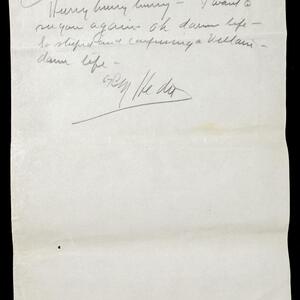 Hurry hurry hurry — I want to
see you again oh damn life —
so stupid and confusing a
damn life —
Hedo